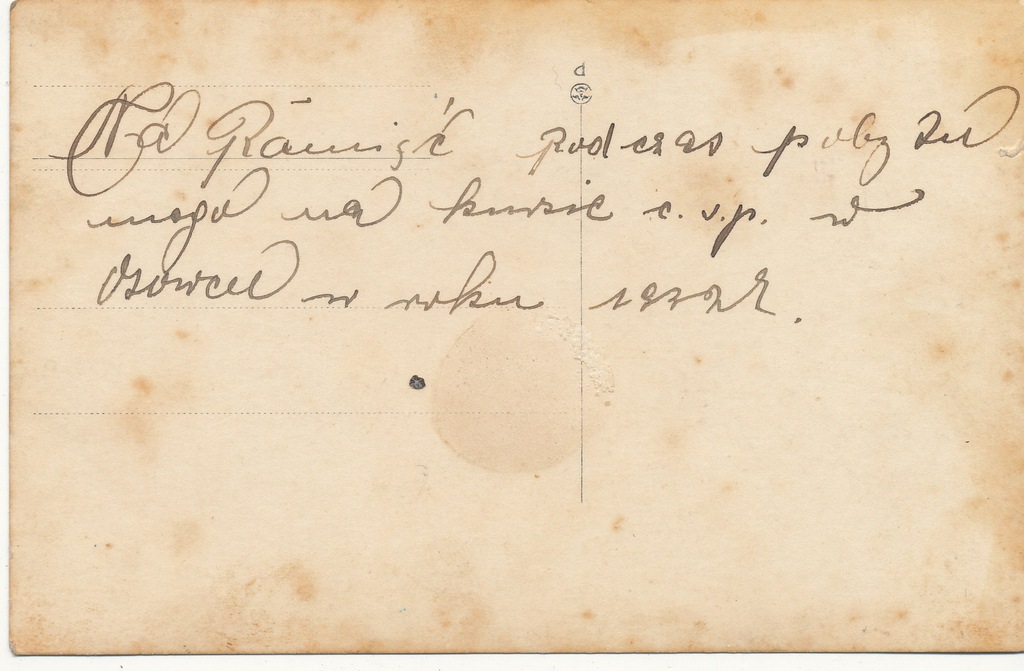 Na Pamięć podczas pobytu
mego na kursie c.s.p. w
Osowcu w roku 1932 r.